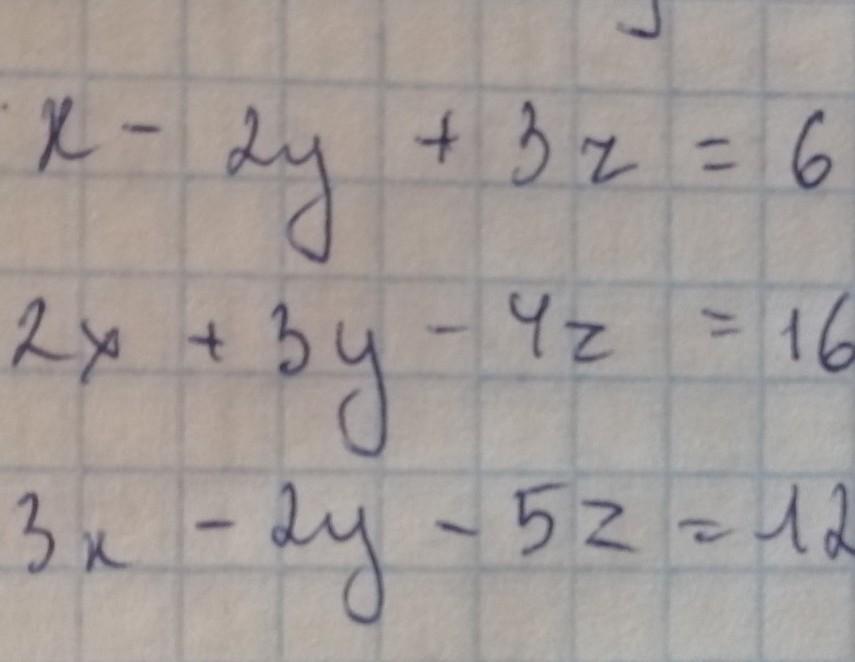 x - 2y + 3z = 6
2x + 3y - 4z = 16
3x - 2y - 5z = 12